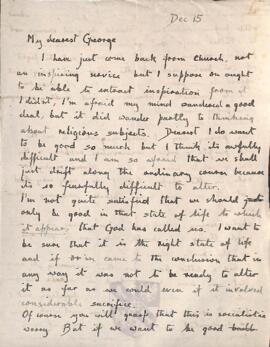 Dec 15
My dearest George
I have just come back from church, not
an inspiring service but I suppose one ought
to be able to extract inspiration from it
I didn't, I'm afraid my mind wandered a good
deal, but it did wander partly to thinking
about religious subjects. Dearest I do want
to be good so much but I think its awfully
difficult and I am so afraid that we shall
just drift along the ordinary course because
its so fearfully difficult to alter.
I'm not quite satisfied that we should just
only be good in that state of life to which
it appears that God has called us. I want to
be sure that it is the right state of life
and if we came to the conclusion that in
any way it was not to be ready to alter
it as far as we could even if it involved
considerable sacrifice.
Of course you will that this is socialistic
worry But if we want to be good